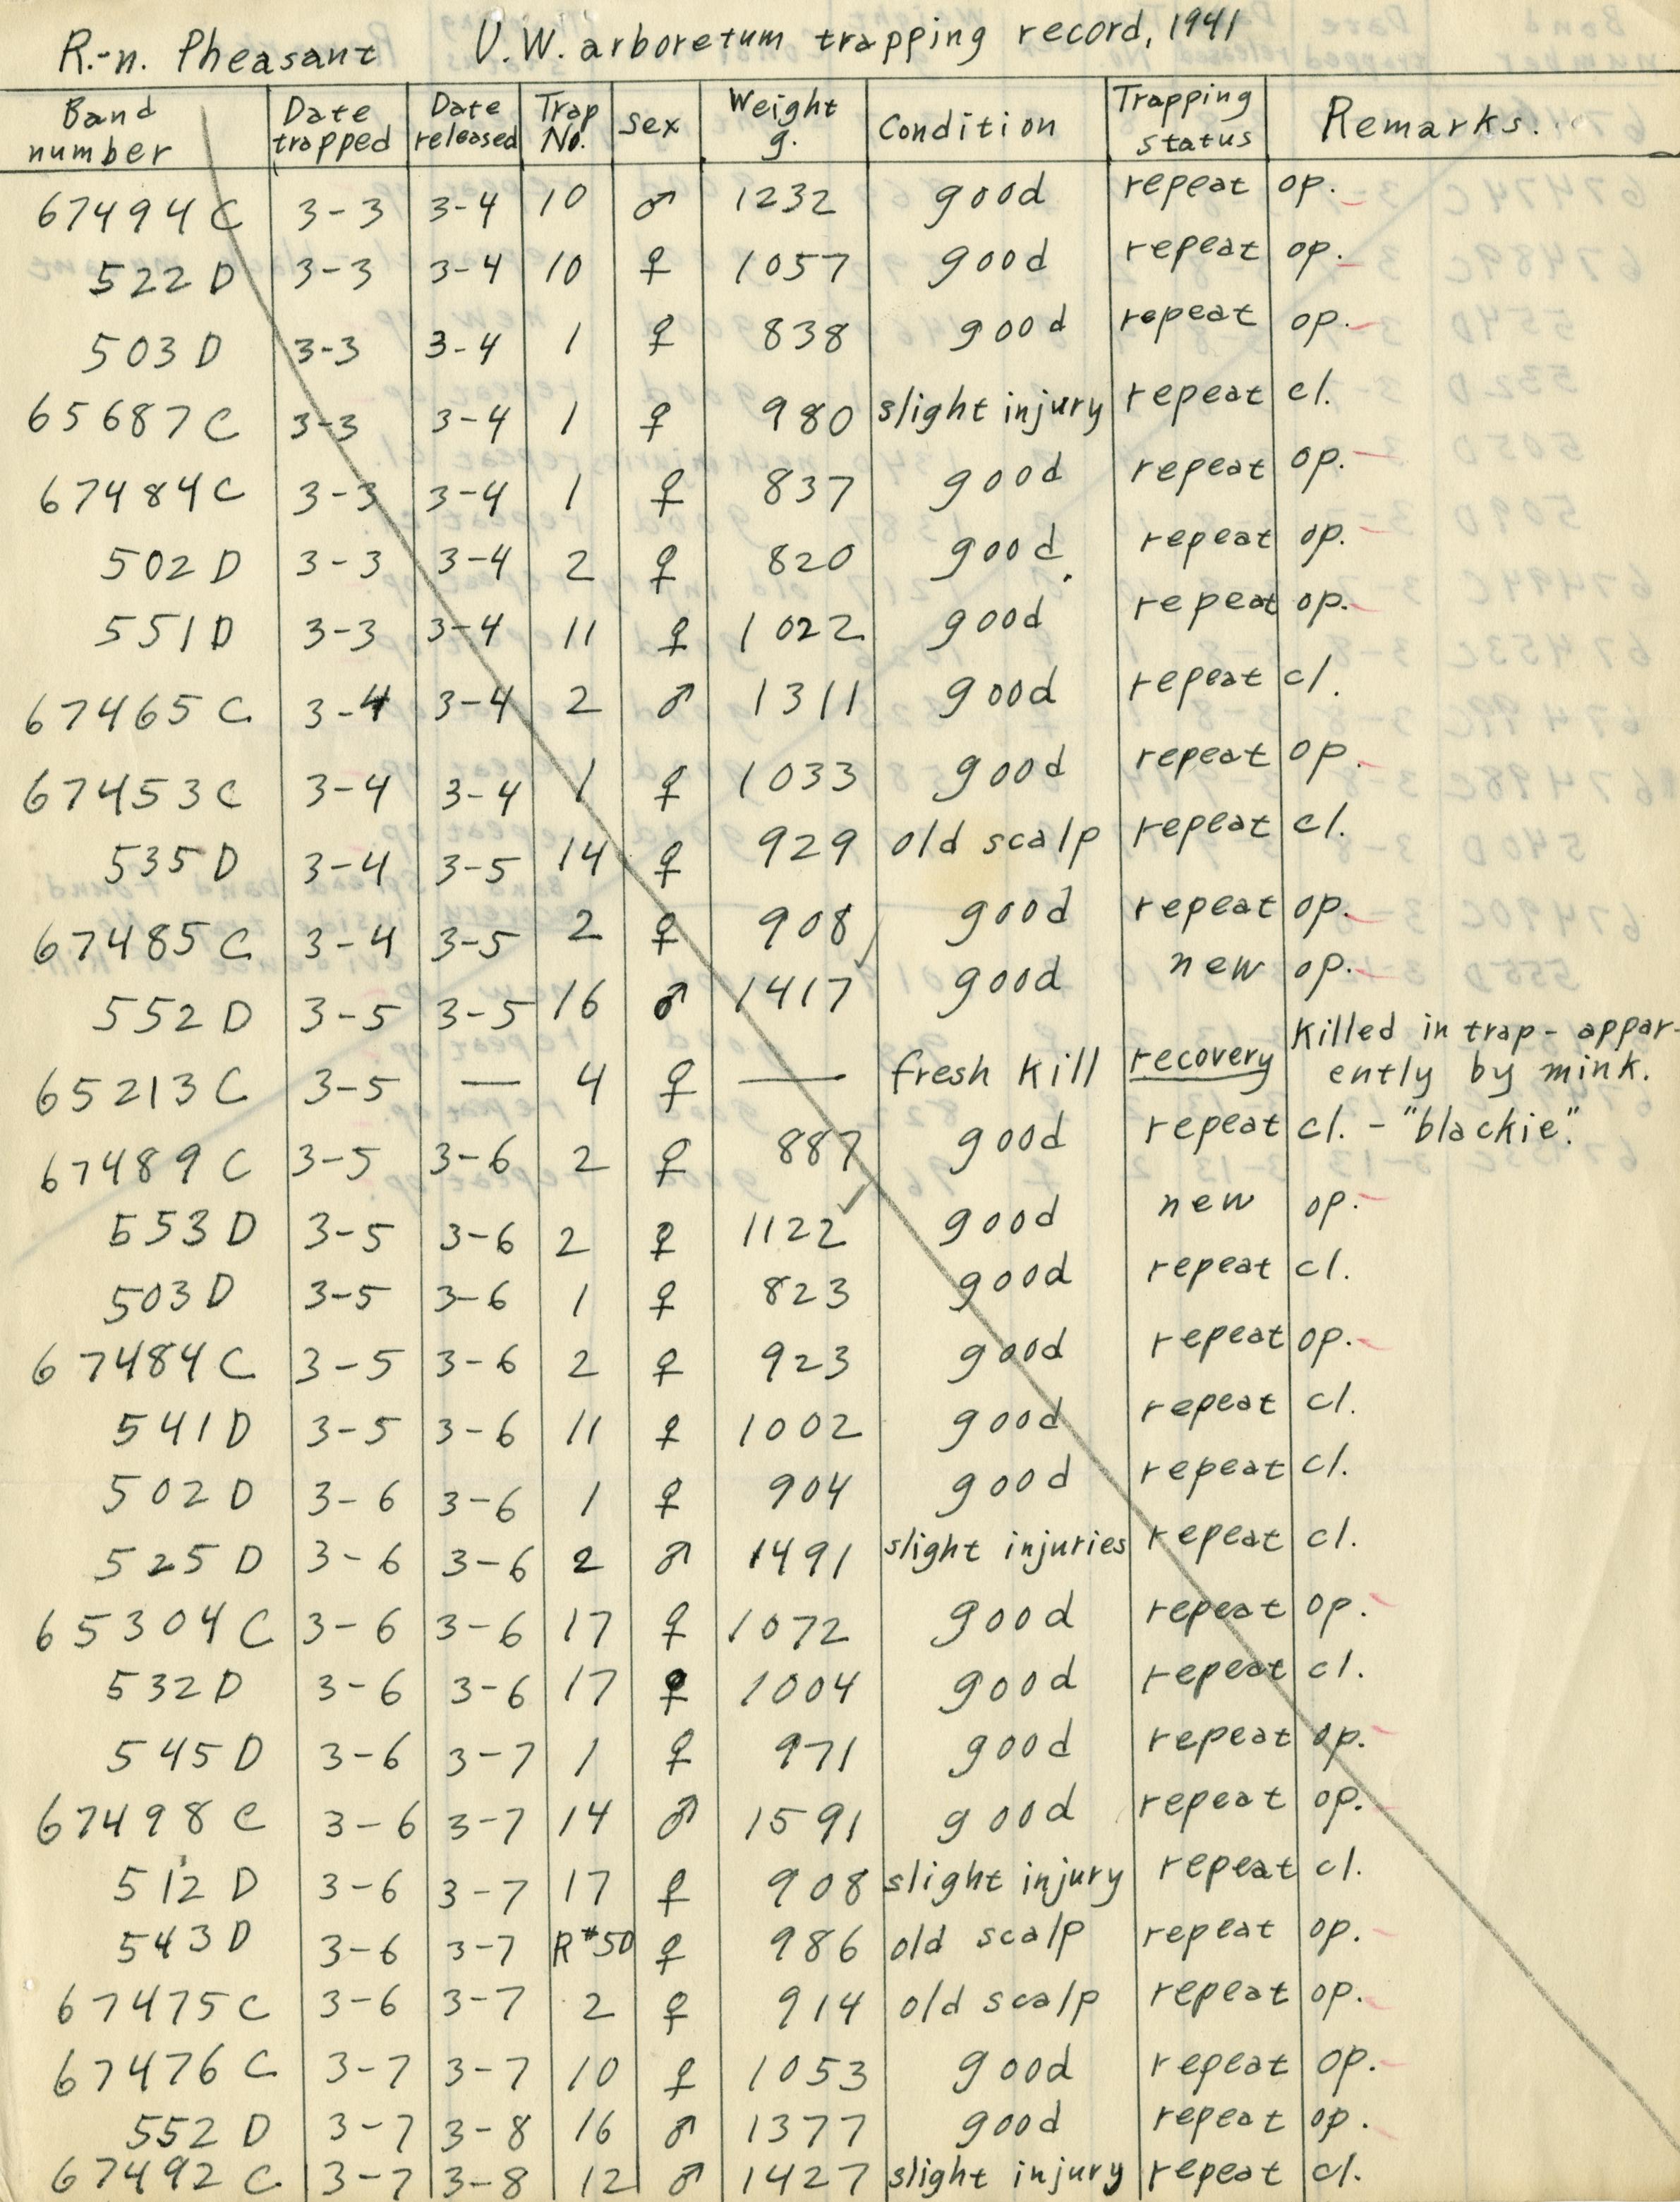 R.-n. Pheasant U.W. arboretum trapping record, 1941
Band number Date trapped Date released Trap No. Sex Weight g. Condition Trapping status Remarks.
67494 C 3-3 3-4 10 ♂ 1232 good repeat op.
522 D 3-3 3-4 10 ♀ 1057 good repeat op.
503 D 3-3 3-4 1 ♀ 838 good repeat op.
65687 C 3-3 3-4 1 ♀ 980 slight injury repeat cl.
67484 C 3-3 3-4 1 ♀ 837 good repeat op.
502 D 3-3 3-4 2 ♀ 820 good repeat op.
551 D 3-3 3-4 11 ♀ 1022 good repeat op.
67465 C 3-4 3-4 2 ♂ 1311 good repeat cl.
67453 C 3-4 3-4 1 ♀ 1033 good repeat op.
535 D 3-4 3-5 14 ♀ 929 old scalp repeat cl.
67485 C 3-4 3-5 2 ♀ 908 good repeat op.
552 D 3-5 3-5 16 ♂ 1417 ✓ good new op.
65213 C 3-5 — 4 ♀ — fresh kill recovery Killed in trap - appar-
ently by mink.
67489 C 3-5 3-6 2 ♀ 887 good repeat cl. - "blackie".
553 D 3-5 3-6 2 ♀ 1122 ✓ good new op.
503 D 3-5 3-6 1 ♀ 823 good repeat cl.
67484 C 3-5 3-6 2 ♀ 923 good repeat op.
541 D 3-5 3-6 11 ♀ 1002 good repeat cl.
502 D 3-6 3-6 1 ♀ 904 good repeat cl.
525 D 3-6 3-6 2 ♂ 1491 slight injuries repeat cl.
65304 C 3-6 3-6 17 ♀ 1072 good repeat op.
532 D 3-6 3-6 17 ♀ 1004 good repeat cl.
545 D 3-6 3-7 1 ♀ 971 good repeat op.
67498 C 3-6 3-7 14 ♂ 1591 good repeat op.
512 D 3-6 3-7 17 ♀ 908 slight injury repeat cl.
543 D 3-6 3-7 R#50 ♀ 986 old scalp repeat op.
67475 C 3-6 3-7 2 ♀ 914 old scalp repeat op.
67476 C 3-7 3-7 10 ♀ 1053 good repeat op.
552 D 3-7 3-8 16 ♂ 1377 good repeat op.
67492 C 3-7 3-8 12 ♂ 1427 slight injury repeat cl.